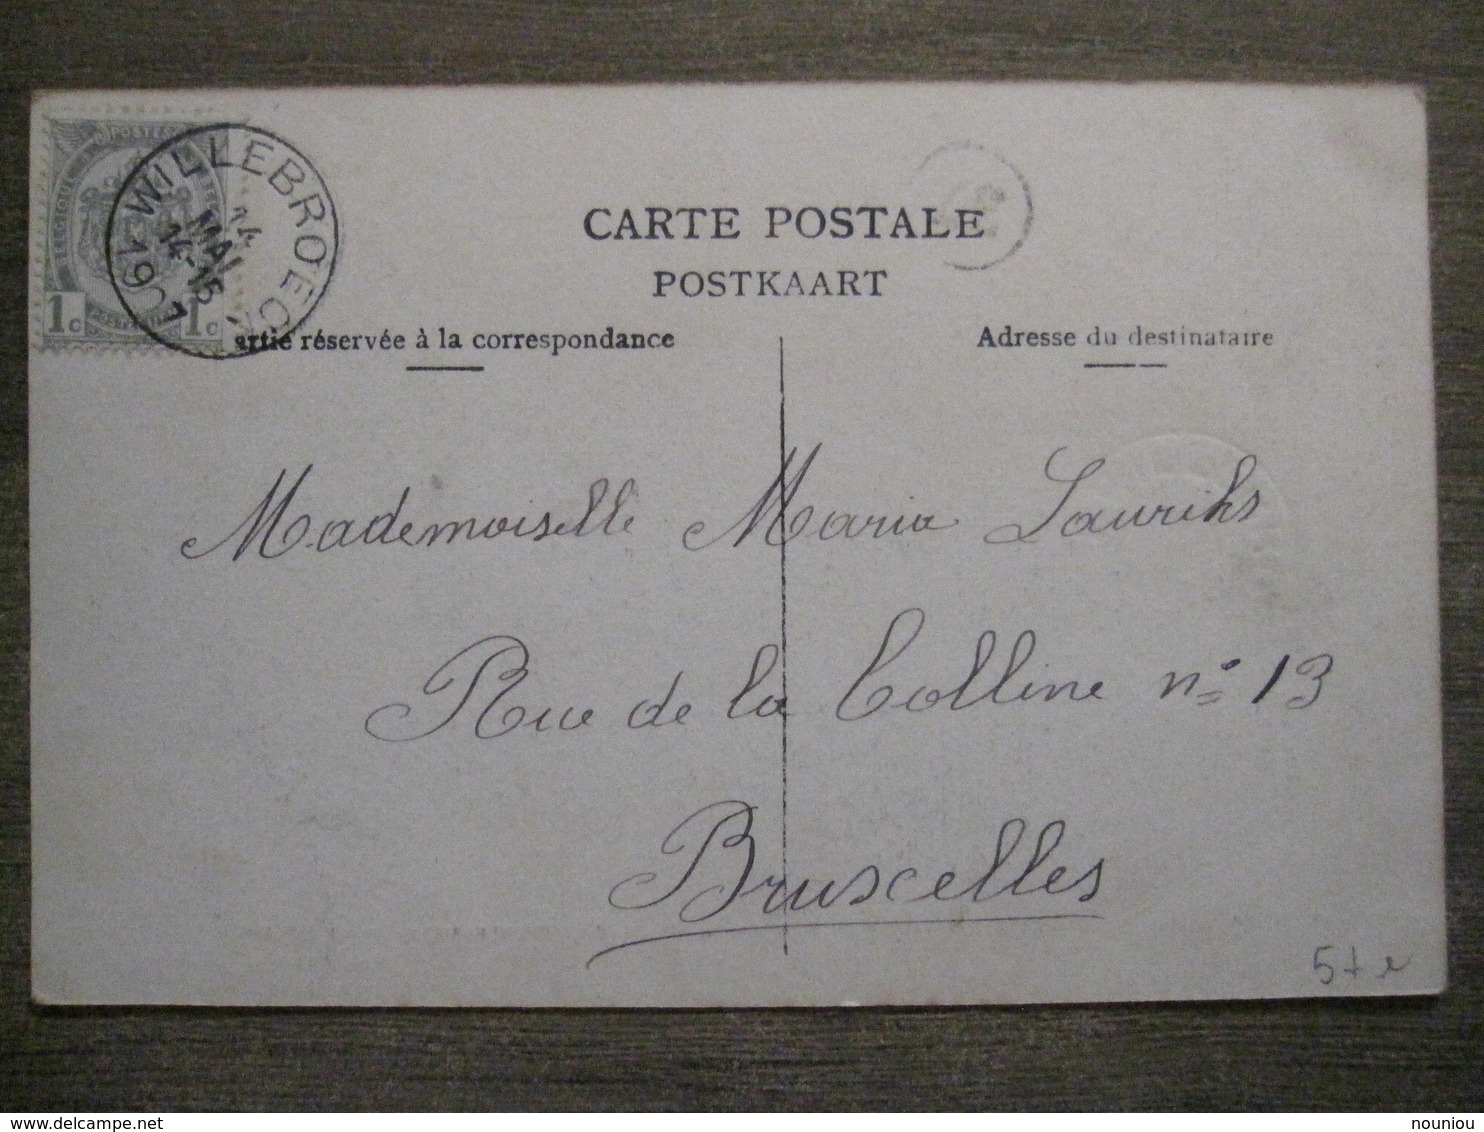 POSTES
BELGIQUE
1c 1c
WILLEBROECK
24
MAI
14-15
1907
CARTE POSTALE
POSTKAART
artie réservée à la correspondance
Adresse du destinataire
Mademoiselle Maria
Rue de la Colline nº 13
Bruxelles
nouniou